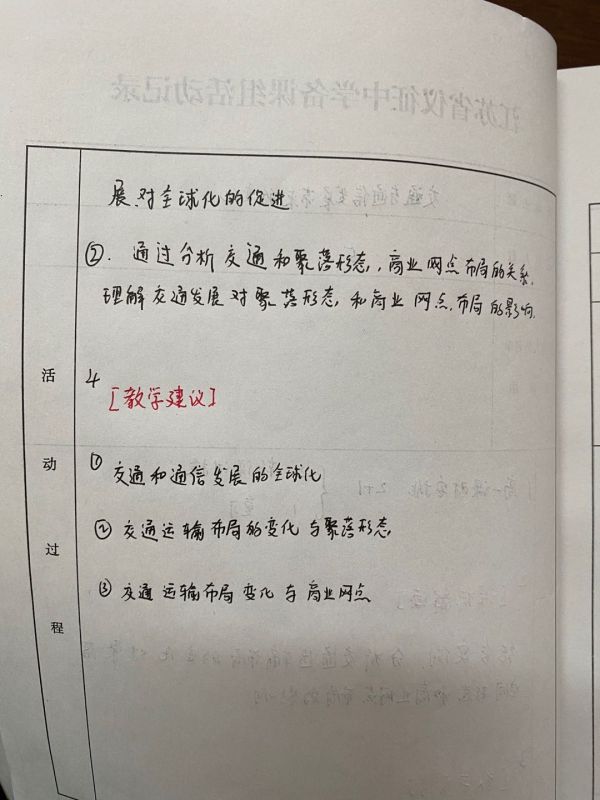 展对全球化的促进
②. 通过分析交通和聚落形态，商业网点布局的关系，
理解交通发展对聚落形态和商业网点布局的影响。
4
[教学建议]
① 交通和通信发展的全球化
② 交通运输布局的变化与聚落形态
③ 交通运输布局变化与商业网点
活
动
过
程